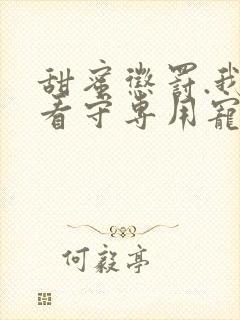 甜蜜懲罰.我
看守專用寵
何毅亭